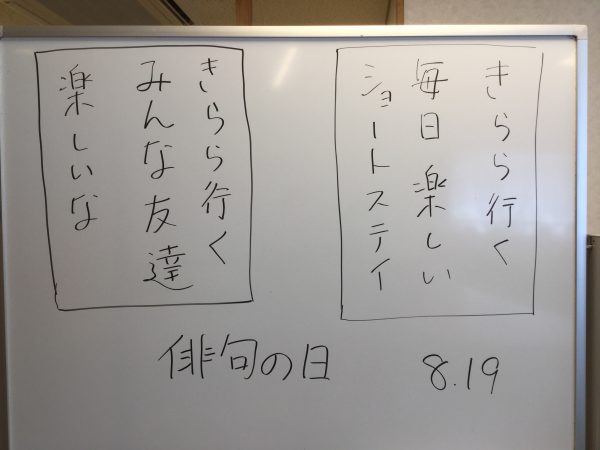 きらら行く
毎日楽しい
ショートステイ
きらら行く
みんな友達
楽しいな
俳句の日
8.19